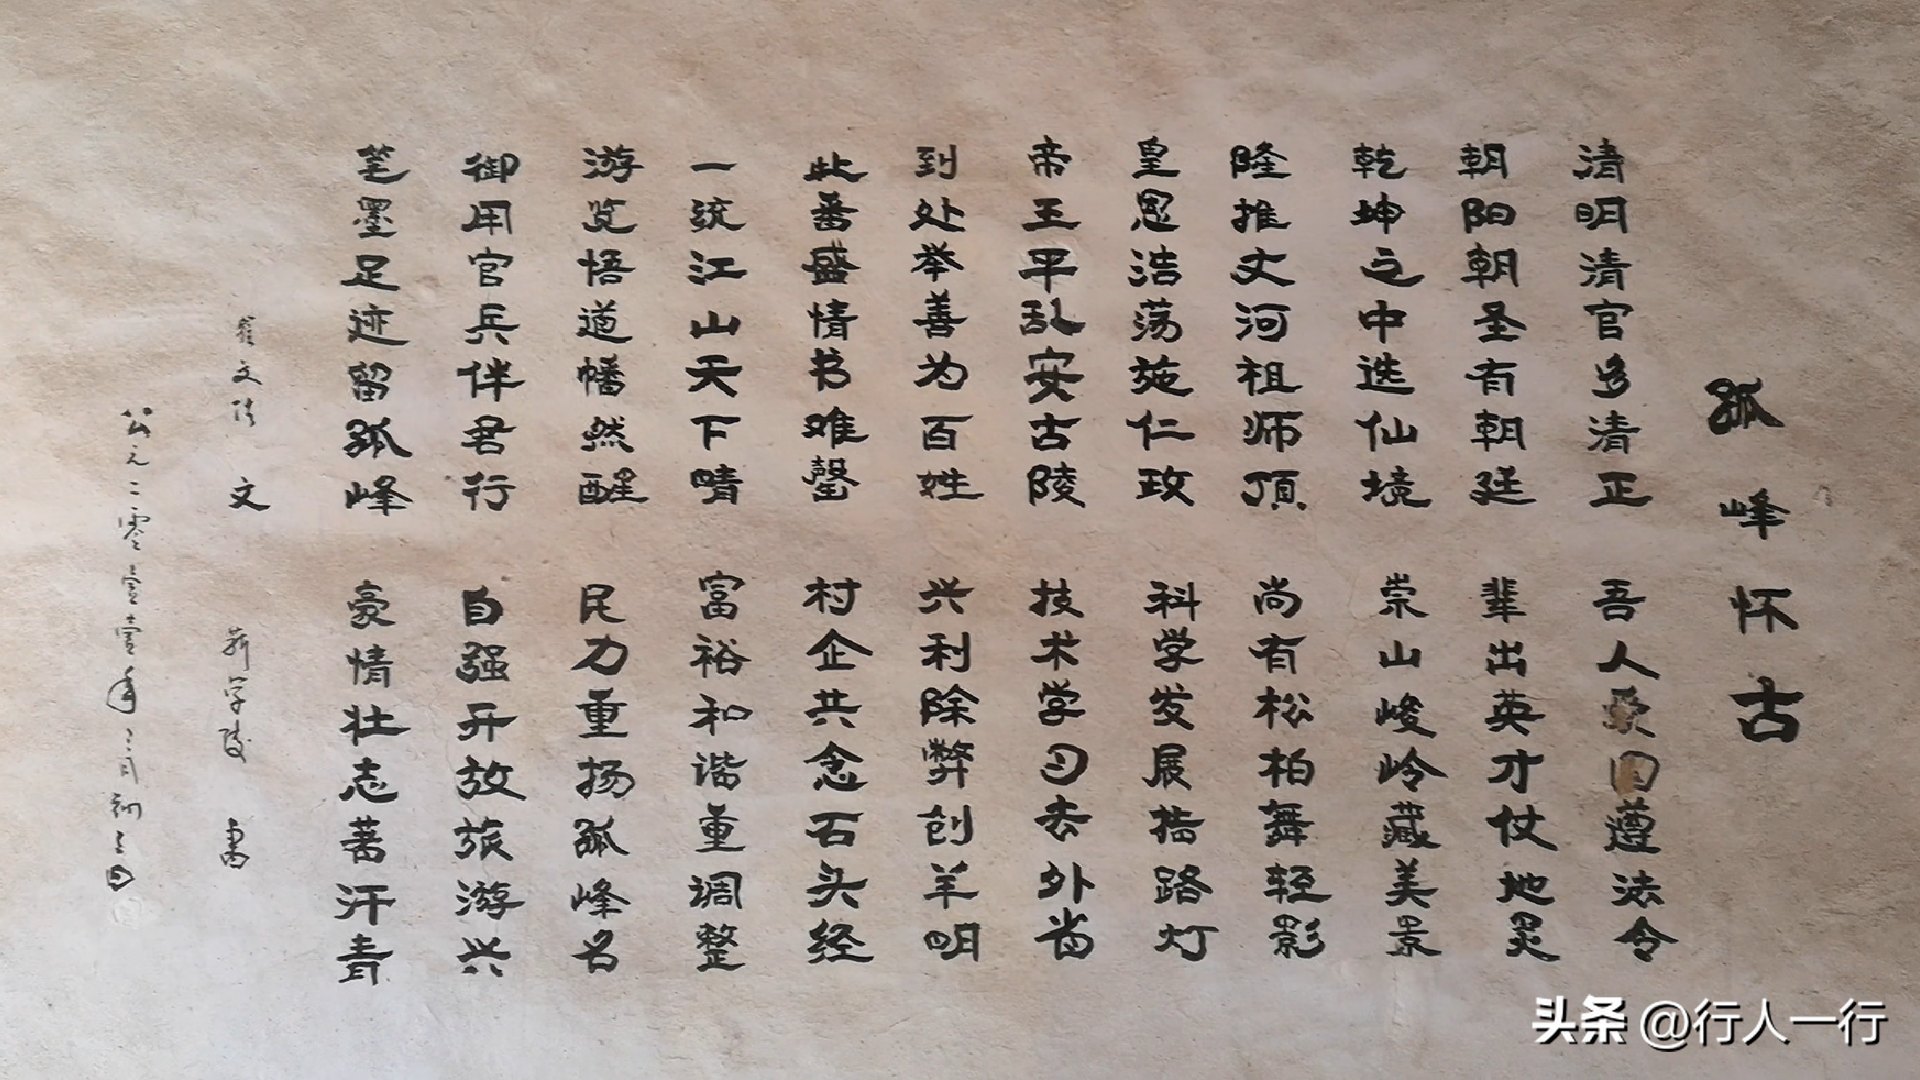 孤峰怀古
清明清官多清正 吾人爱国遵法令
朝阳朝圣有朝廷 辈出英才仗地灵
乾坤之中选仙境 崇山峻岭藏美景
隆推丈河祖师顶 尚有松柏舞轻影
皇恩浩荡施仁政 科学发展描路灯
帝王平乱安古陵 技术学习去外省
到处举善为百姓 兴利除弊创羊明
此番盛情书难罄 村企共念石头经
一统江山天下晴 富裕和谐重调整
游览悟道幡然醒 民力重扬孤峰名
御用官兵伴君行 自强开放旅游兴
笔墨足迹留孤峰 豪情壮志著汗青
文 书
公元二零壹壹年三月初三日
头条 @行人一行